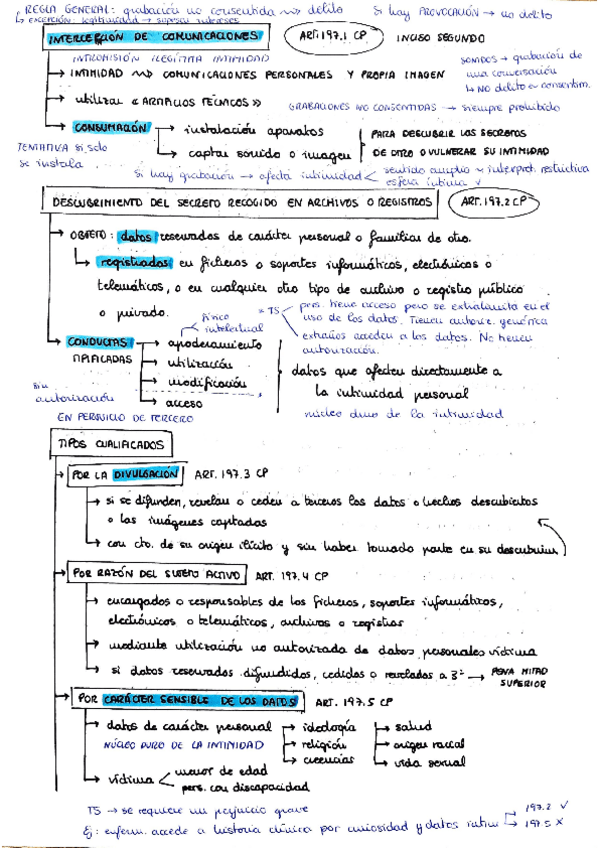 REGLA GENERAL: grabación no consentida ~> delito
Si hay PROVOCACIÓN → no delito
↳ EXCEPCIÓN: legitimidad → supesar intereses
INTERCEPCIÓN DE COMUNICACIONES
ART. 197.1 CP
INCISO SEGUNDO
INTROMISIÓN ILEGÍTIMA INTIMIDAD
SONIDOS → grabación de
una conversación
↳ NO delito consentim.
→ INTIMIDAD ~> COMUNICACIONES PERSONALES Y PROPIA IMAGEN
→ utilizar «ARTIFICIOS TÉCNICOS»
GRABACIONES NO CONSENTIDAS → siempre prohibido
→ CONSUMACIÓN → instalación aparatos
→ captar sonido o imagen
PARA DESCUBRIR LOS SECRETOS
DE OTRO O VULNERAR SU INTIMIDAD
TENTATIVA si solo
se instala
Si hay grabación → afecta intimidad < sentido amplio ~ interpret. restrictiva
esfera íntima ✓
DESCUBRIMIENTO DEL SECRETO RECOGIDO EN ARCHIVOS O REGISTROS
ART. 197.2 CP
→ OBJETO: datos reservados de carácter personal o familiar de otro.
↳ registrados en ficheros o soportes informáticos, electrónicos o
telemáticos, o en cualquier otro tipo de archivo o registro público
o privado.
= TS
pers. tiene acceso pero se extralimita en el
uso de los datos. Tienen autoriz. genérica
extraños acceden a los datos. No tienen
autorización.
físico
intelectual
→ CONDUCTAS
TIPIFICADAS
→ apoderamiento
→ utilización
→ modificación
→ acceso
datos que afecten directamente a
la intimidad personal
núcleo duro de la intimidad
sin
autorización
EN PERJUICIO DE TERCERO
TIPOS CUALIFICADOS
→ POR LA DIVULGACIÓN ART. 197.3 CP
→ si se difunden, revelan o ceden a terceros los datos o hechos descubiertos
o las imágenes captadas
→ con cto. de su origen ilícito y sin haber tomado parte en su descubrim.
→ POR RAZÓN DEL SUJETO ACTIVO ART. 197.4 CP
→ encargados o responsables de los ficheros, soportes informáticos,
electrónicos o telemáticos, archivos o registros
→ mediante utilización no autorizada de datos personales víctima
→ si datos reservados difundidos, cedidos o revelados a 3º → PENA MITAD
SUPERIOR
→ POR CARÁCTER SENSIBLE DE LOS DATOS ART. 197.5 CP
→ datos de carácter personal → ideología → salud
NÚCLEO DURO DE LA INTIMIDAD → religión → origen racial
→ creencias → vida sexual
→ víctima < menor de edad
pers. con discapacidad
TS → se requiere un perjuicio grave
Ej: enferm. accede a historia clínica por curiosidad y datos
→ 197.2 ✓
→ 197.5 X